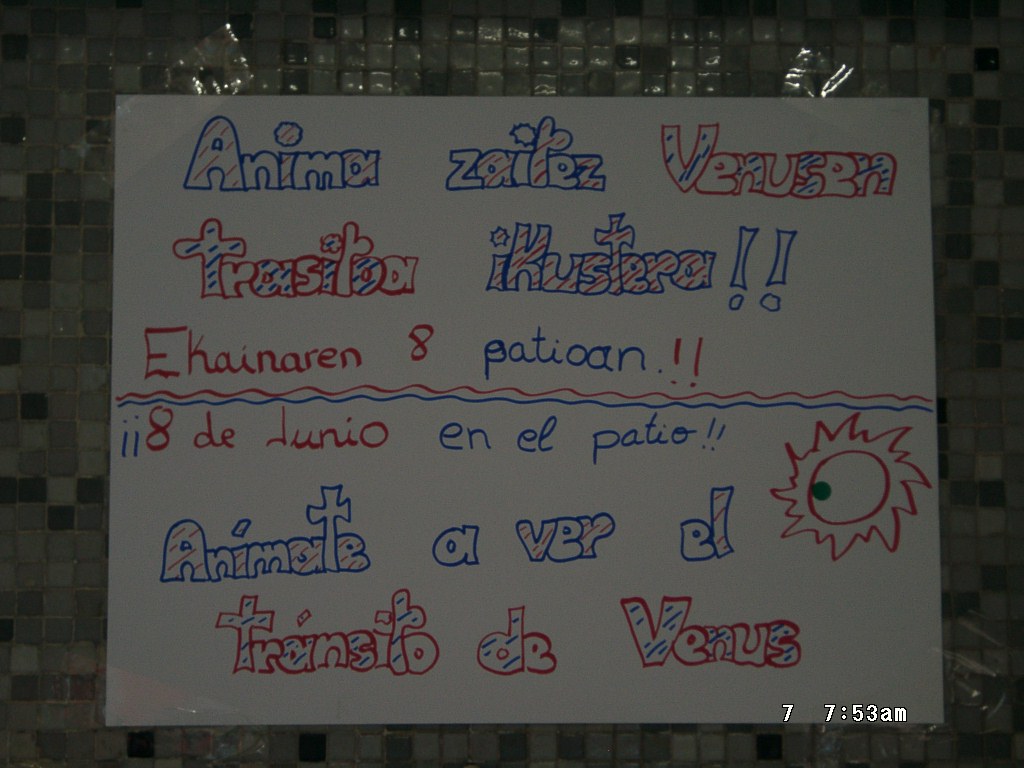 Anima zaitez Venusen
trasitoa ikustera!!
Ekainaren 8 patioan.!!
¡¡8 de Junio en el patio!!
Anímate a ver el
tránsito de Venus
7 7:53am